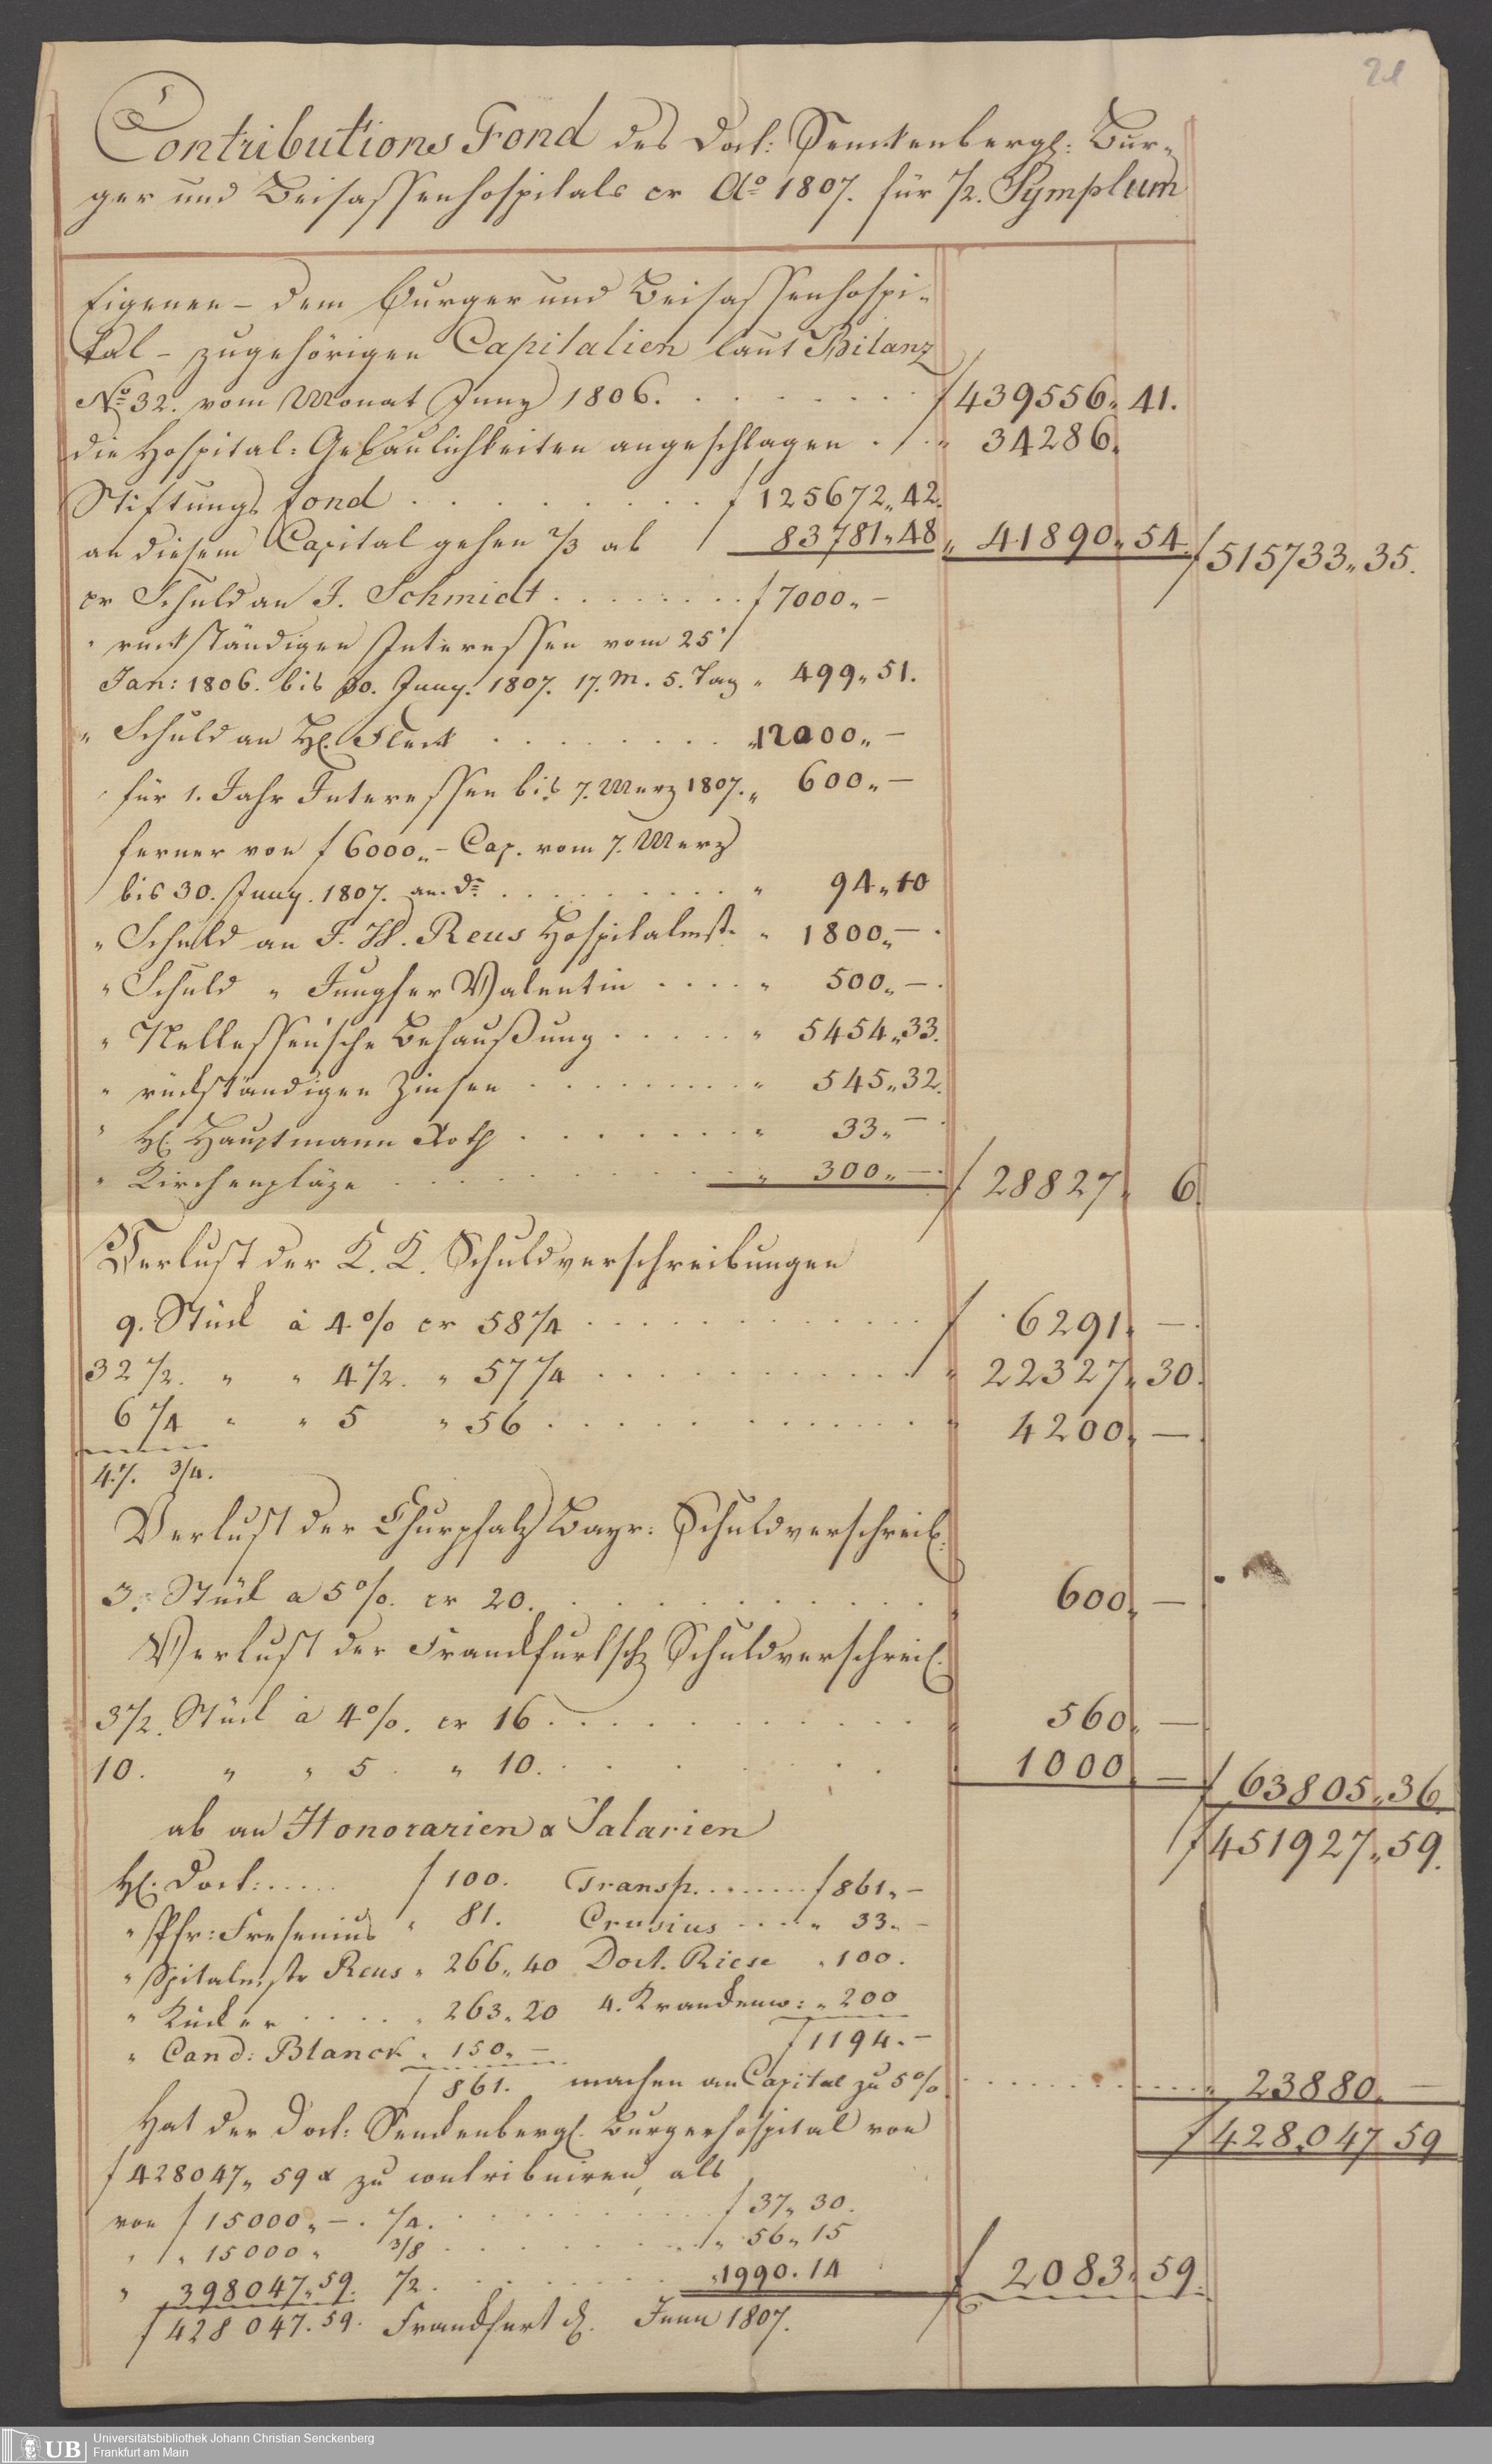 21
Contributions Fond des Doct: Senckenbergl: Bur-
ger und Beisassenhospitals pr Ao 1807. für 1/2. Symplum
Eigenen - dem Burger und Beisassenhospi-
tal - zugehörigen Capitalien laut Bilanz
No 32. vom Monat Juny 1806. . . . . . . . f 439556„ 41.
die Hospital: Gebäulichkeiten angeschlagen . . „ 34286„
Stiftungs fond . . . . . . . . f 125672„ 42.
an diesem Capital gehen 2/3 ab 83781„ 48 „ 41890„ 54. f 515733„ 35.
pr Schuld an J. Schmidt . . . . . . . . f 7000„ —
„ rückständigen Interessen vom 25t
Jan: 1806. bis 30. Juny. 1807. 17. M. 5. Tag „ 499„ 51.
„ Schuld an H. Fleck . . . . . . . . „ 12000„ —
für 1. Jahr Interessen bis 7. Merz 1807. „ 600„ —
ferner von f 6000„ — Cap. vom 7. Merz
bis 30. Juny. 1807. an do . . . . . . . . „ 94„ 10
„ Schuld an J. W. Reus Hospitalmstr „ 1800„ — .
„ Schuld „ Jungfer Valentin . . . . „ 500„ — .
„ Nellessen'sche Behaußung . . . . . „ 5454„ 33.
„ rückständigen Zinsen . . . . . . . . „ 545„ 32.
„ H. Hauptmann Roth . . . . . . . . „ 33„ — .
„ Kirchenpläze . . . . . . . . „ 300„ — . f 28827„ 6.
Verlust der K. K. Schuldverschreibungen
9. Stück à 4 % pr 58 1/4 . . . . . . . . f 6291„ — .
32 1/2. „ „ 4 1/2. „ 57 1/4 . . . . . . . . „ 22327„ 30.
6 1/4 „ „ 5 „ 56 . . . . . . . . „ 4200„ —
47. 3/4.
Verlust der Churpfalz Bayr: Schuldverschreib.
3. Stück a 5 %. pr 20. . . . . . . . . „ 600„ —
Verlust der Franckfurtsch Schuldverschreib.
3 1/2. Stück à 4 %. pr 16 . . . . . . . . „ 560„ —
10. „ „ 5 . „ 10. . . . . . . . . 1000 — f 63805„ 36.
f 451927„ 59.
ab an Honorarien & Salarien
H. Doct: . . . . . f 100. Transp. . . . . . . f 861„ —
„ Pfr: Fresenius „ 81. Crusius . . . . „ 33„ —
„ Spitalmstr Reus „ 266„ 40 Doct. Riese „ 100.
„ Kücker . . . . „ 263„ 20 4. Kranckenw: „ 200
„ Cand: Blanck „ 150„ — f 1194. —
f 861. machen an Capital zu 5 % . . . . . . . . „ 23880„ —
Hat der Doct: Senckenbergl. Burgerhospital von f 428„047 59
f 428047„ 59 x zu contribuiren, als
von f 15000„ — . 1/4. . . . . . . . . f 37„ 30.
„ „ 15000„ 3/8 . . . . . . . . „ 56„ 15
„ 398047„ 59. 1/2. . . . . . . . . „ 1990. 14 f 2083„ 59.
f 428 047. 59. Franckfurt d. Juny 1807.
UB Universitätsbibliothek Johann Christian Senckenberg
Frankfurt am Main